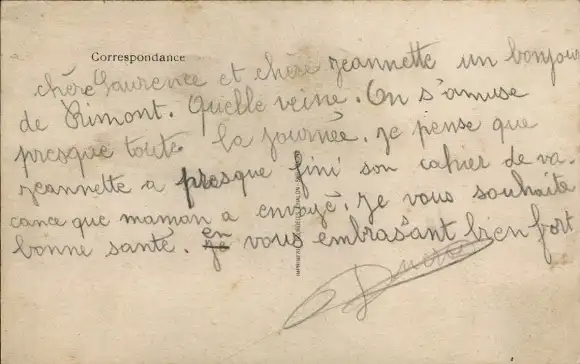 Correspondance
chère Laurence et chère jeannette un bonjour
de Rimont. Quelle veine. On s'amuse
presque toute la journée. je pense que
jeannette a presque fini son cahier de va-
cance que maman a envoyé. je vous souhaite
bonne santé. en
je vous embrasant bien fort